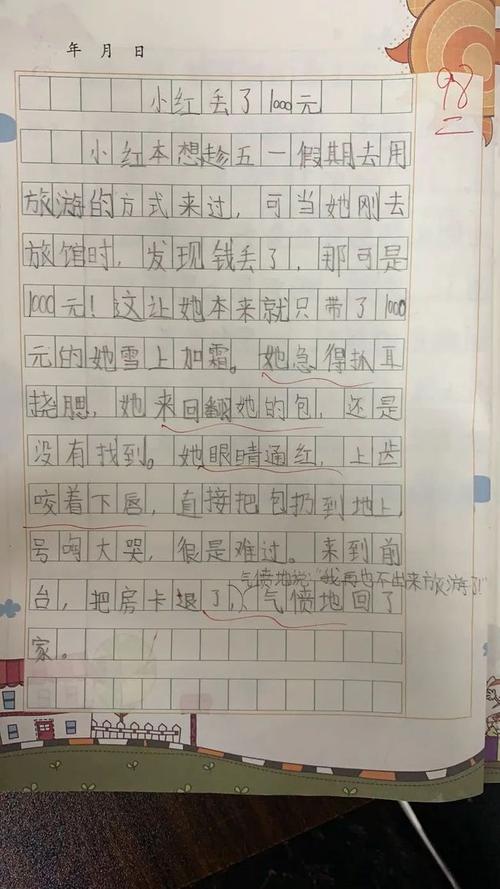 年 月 日
98
小红丢了1000元
小红本想趁五一假期去用
旅游的方式来过，可当她刚去
旅馆时，发现钱丢了，那可是
1000元！这让她本来就只带了1000
元的她雪上加霜。她急得抓耳
挠腮，她来回翻她的包，还是
没有找到。她眼睛通红，上齿
咬着下唇，直接把包扔到地上，
号啕大哭，很是难过。来到前
气愤地说："我再也不出来旅游了！"
台，把房卡退了，气愤地回了
家。